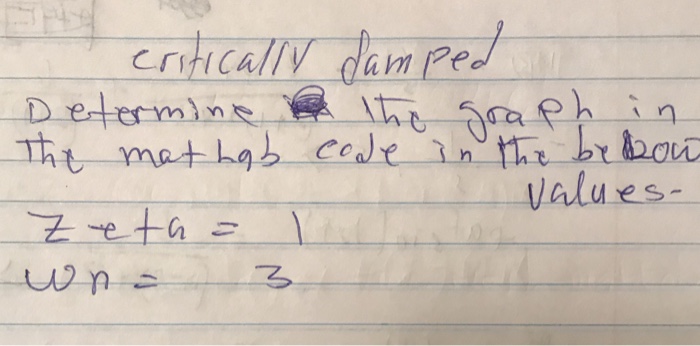 critically damped
Determine the graph in
The mathab code in the below
values-
Zeta = 1
wn = 3